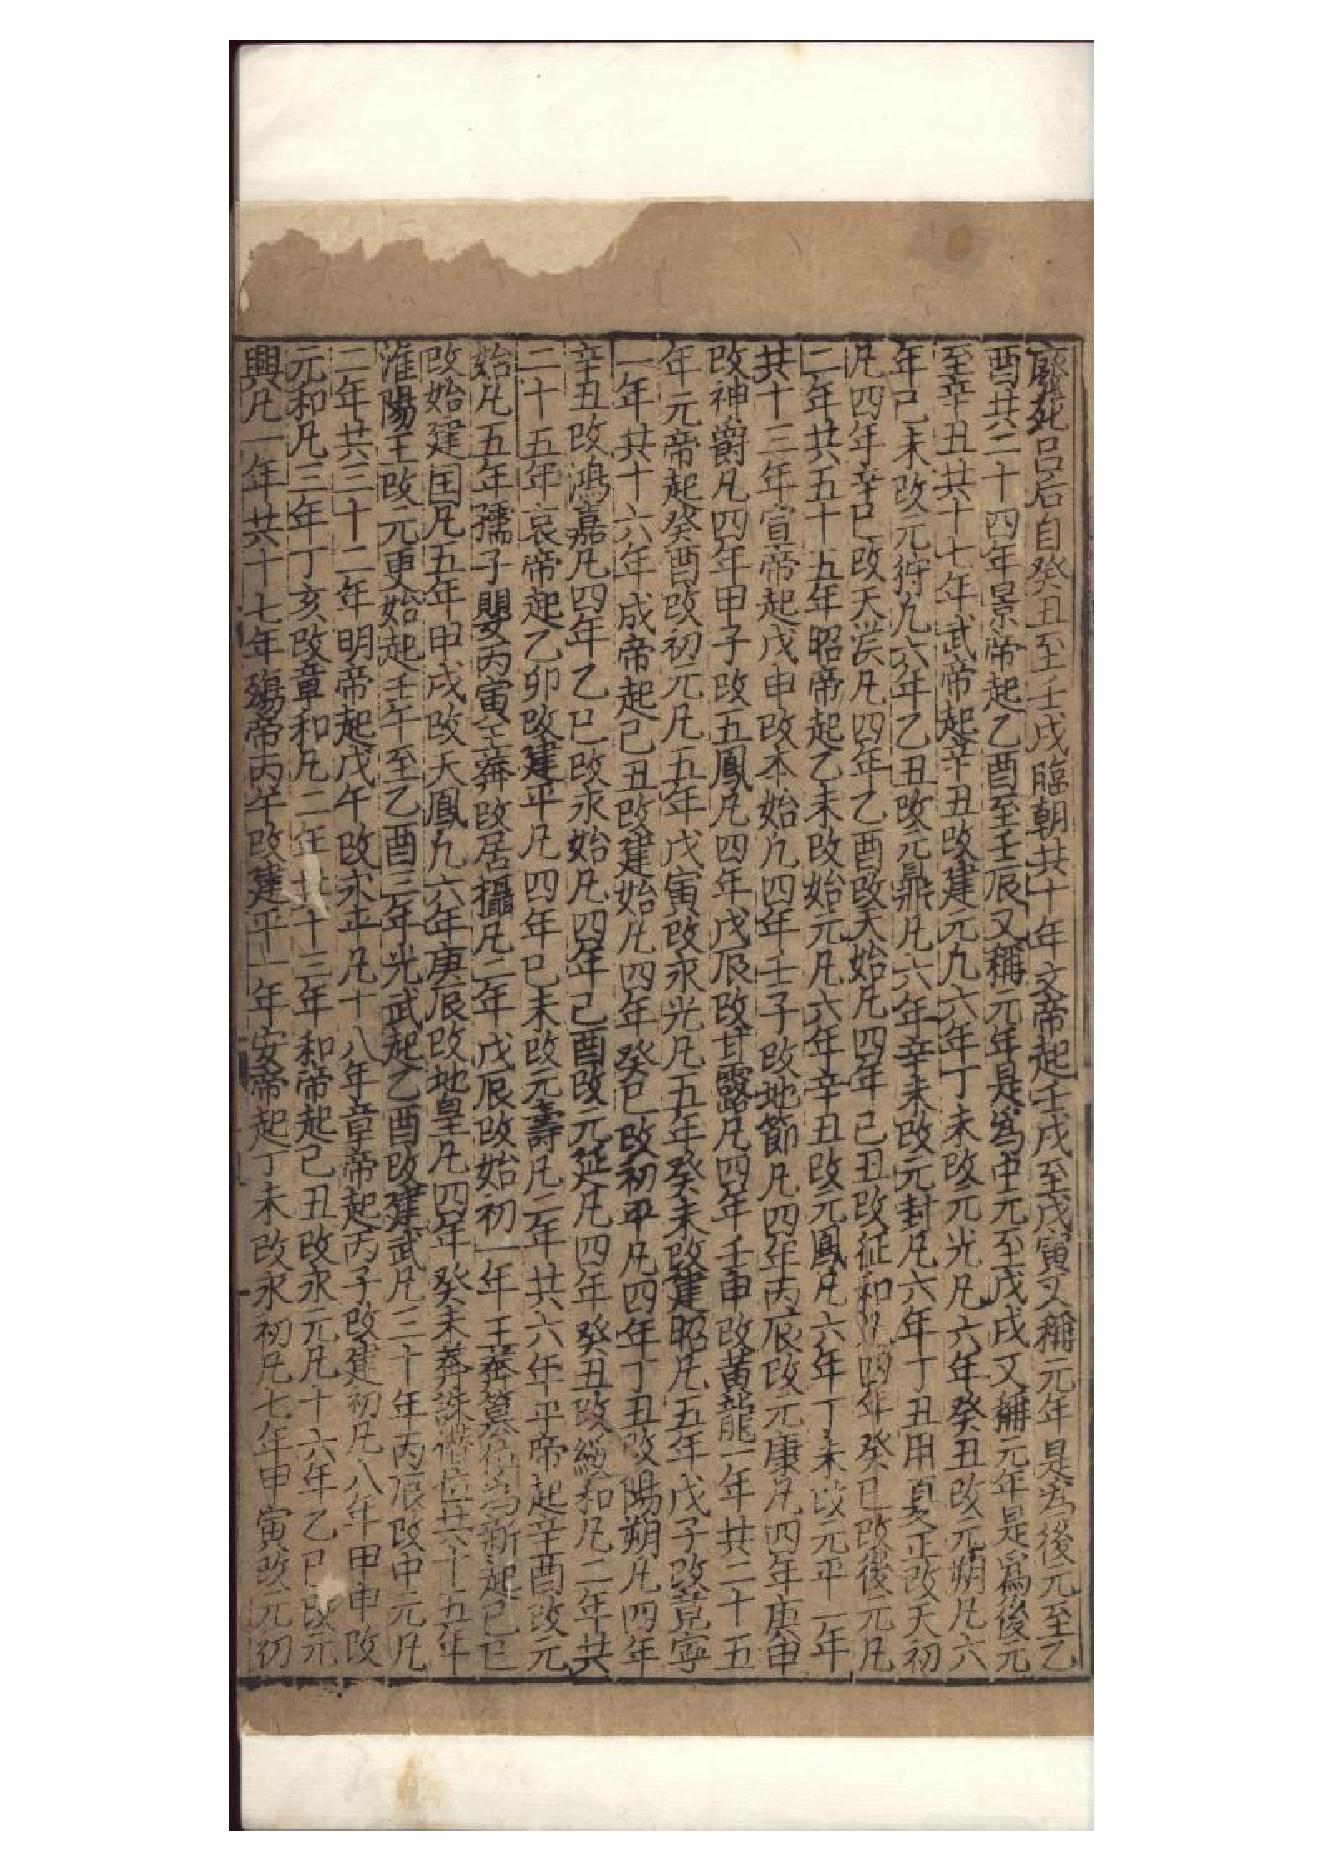 廢死呂后自癸丑至壬戌臨朝共十年文帝起壬戌至戊寅又稱元年是為後元至乙
酉共二十四年景帝起乙酉至壬辰又稱元年是為中元至戊戌又稱元年是爲後元
至辛丑共十七年武帝起辛丑改建元凡六年丁未改元光凡六年癸丑改元朔凡六
年己未改元狩凡六年乙丑改元鼎凡六年辛未改元封凡六年丁丑用夏正改天初
凡四年辛巳改天漢凡四年乙酉改天始凡四年己丑改征和凡四年癸巳改後元凡
二年共五十五年昭帝起乙未改始元凡六年辛丑改元鳳凡六年丁未改元平一年
共十三年宣帝起戊申改本始凡四年壬子改地節凡四年丙辰改元康凡四年庚申
改神爵凡四年甲子改五鳳凡四年戊辰改甘露凡四年壬申改黃龍一年共二十五
年元帝起癸酉改初元凡五年戊寅改永光凡五年癸未改建昭凡五年戊子改竟寧
一年共十六年成帝起己丑改建始凡四年癸巳改初平凡四年丁丑改陽朔凡四年
辛丑改鴻嘉凡四年乙巳改永始凡四年己酉改元延凡四年癸丑改綏和凡二年共
二十五年哀帝起乙卯改建平凡四年巳未改元壽凡二年共六年平帝起辛酉改元
始凡五年孺子嬰丙寅王莽改居攝凡二年戊辰改始初一年王莽篡位爲新起己巳
改始建国凡五年甲戌改天鳳凡六年庚辰改地皇凡四年癸未莽誅僣位共六十五年
淮陽王改元更始起壬午至乙酉三年光武起乙酉改建武凡三十年丙辰改中元凡
二年共三十二年明帝起戊午改永平凡十八年章帝起丙子改建初凡八年甲申改
元和凡三年丁亥改章和凡二年共十三年和帝起己丑改永元凡十六年乙巳改元
興凡一年共十七年殤帝丙午改建平一年安帝起丁未改永初凡七年甲寅改元初